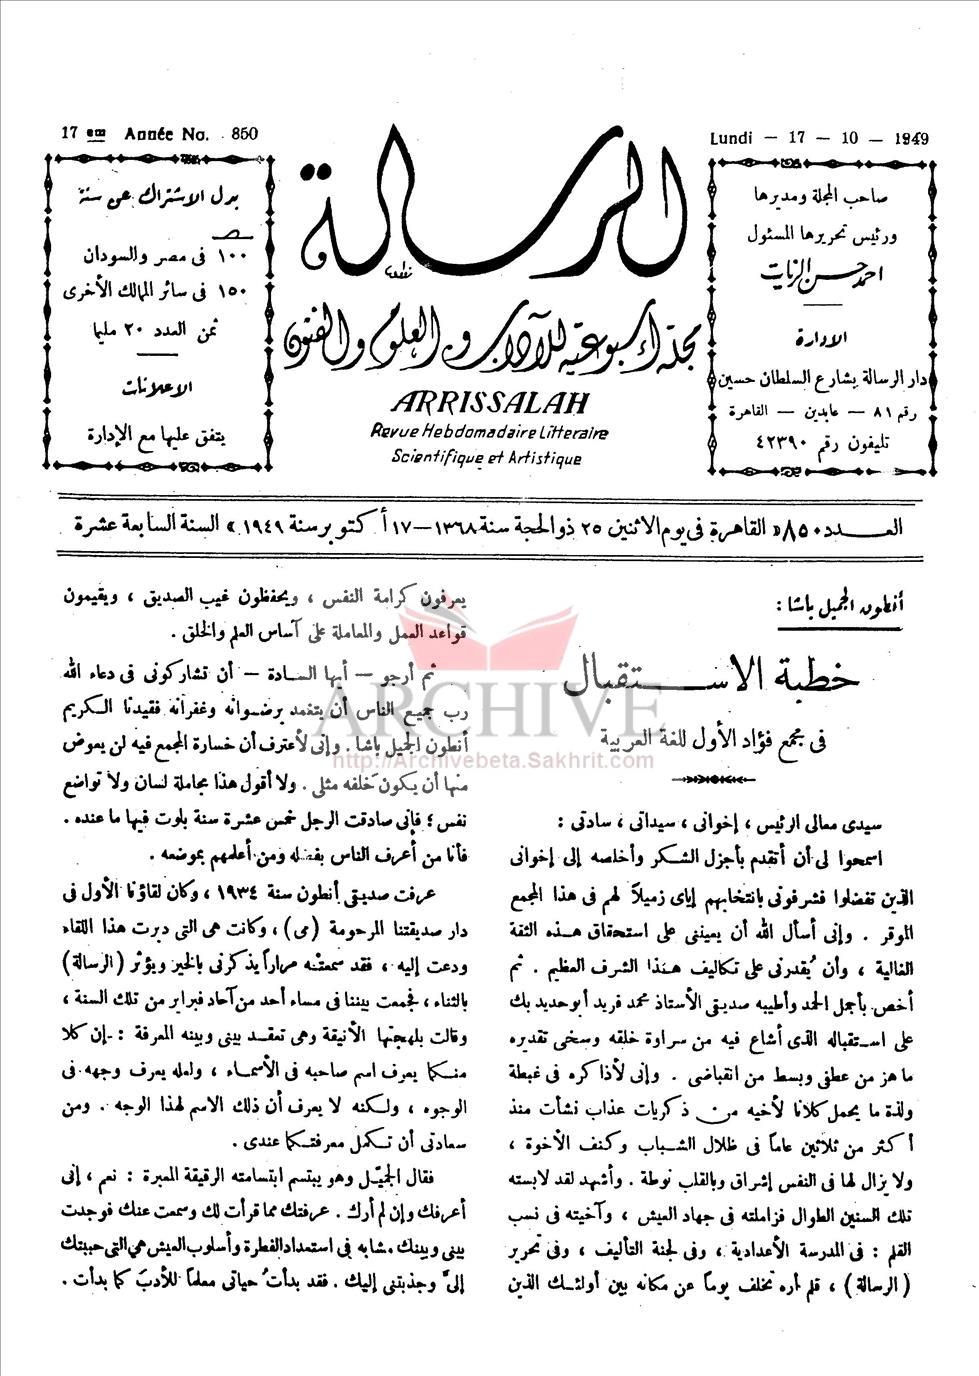 17 em Année No. 850
Lundi - 17 - 10 - 1949
صاحب المجلة ومديرها
ورئيس تحريرها المسئول
احمد حسن الزيات
الادارة
دار الرسالة بشارع السلطان حسين
رقم ٨١ — عابدين — القاهرة
تليفون رقم ٤٢٣٩٠
الرسالة
مجلة أسبوعية للآداب والعلوم والفنون
ARRISSALAH
Revue Hebdomadaire Litteraire
Scientifique et Artistique
بدل الاشتراك عن سنة
١٠٠ فى مصر والسودان
١٥٠ فى سائر الممالك الأخرى
ثمن العدد ٢٠ مليما
الاعلانات
يتفق عليها مع الإدارة
العـــدد ٨٥٠ « القاهرة فى يوم الاثنين ٢٥ ذو الحجة سنة ١٣٦٨ — ١٧ أكتوبر سنة ١٩٤٩ » السنة السابعة عشرة
أنطون الجميل باشا :
خطبة الاســتقبال
فى مجمع فؤاد الأول للغة العربية
سيدى معالى الرئيس ، إخوانى ، سيداتى ، سادتى :
اسمحوا لى أن أتقدم بأجزل الشكر وأخلصه إلى إخوانى
الذين تفضلوا فشرفونى بانتخابهم إياى زميلاً لهم فى هذا المجمع
الموقر . وإنى أسأل الله أن يعيننى على استحقاق هذه الثقة
الغالية ، وأن يُقدرنى على تكاليف هذا الشرف العظيم . ثم
أخص بأجمل الحمد وأطيبه صديقى الأستاذ محمد فريد أبو حديد بك
على استقباله الذى أشاع فيه من سراوة خلقه وسخى تقديره
ما هز من عطفى وبسط من انقباضى . وإنى لأذاكره فى غبطة
ولذة ما يحمل كلانا لأخيه من ذكريات عذاب نشأت منذ
أكثر من ثلاثين عاماً فى ظلال الشباب وكنف الأخوة ،
ولا يزال لها فى النفس إشراق وبالقلب نوطة . وأشهد لقد لابسته
تلك السنين الطوال فزاملته فى جهاد العيش ، وآخيته فى نسب
القلم : فى المدرسة الأعدادية ، وفى لجنة التأليف ، وفى تحرير
( الرسالة ) ، فلم أره تخلف يوماً عن مكانه بين أولئك الذين
يعرفون كرامة النفس ، ويحفظون غيب الصديق ، ويقيمون
قواعد العمل والمعاملة على آساس العلم والخلق .
ثم أرجو — أيها السادة — أن تشاركونى فى دعاء الله
رب جميع الناس أن يتغمد برضوانه وغفرانه فقيدنا الكريم
أنطون الجميل باشا . وإنى لأعترف أن خسارة المجمع فيه لن يعوض
منها أن يكون خَلفه مثلى . ولا أقول هذا مجاملة لسان ولا تواضع
نفس ؛ فإنى صادقت الرجل خمس عشرة سنة بلوت فيها ما عنده .
فأنا من أعرف الناس بفضله ومن أعلمهم بموضعه .
عرفت صديقى أنطون سنة ١٩٣٤ ، وكان لقاؤنا الأول فى
دار صديقتنا المرحومة ( مى ) ، وكانت هى التى دبرت هذا اللقاء
ودعت إليه ، فقد سمعتْه مراراً يذكرنى بالخير ويؤثر ( الرسالة )
بالثناء ، فجمعت بيننا فى مساء أحد من آحاد فبراير من تلك السنة ،
وقالت بلهجتها الأنيقة وهى تعقد بينى وبينه المعرفة : إن كلا
منكما يعرف اسم صاحبه فى الأسماء ، ولعله يعرف وجهه فى
الوجوه ، ولكنه لا يعرف أن ذلك الاسم لهذا الوجه . ومن
سعادتى أن تكمل معرفتكما عندى .
فقال الجميّل وهو يبتسم ابتسامته الرقيقة المعبرة : نعم ، إنى
أعرفك وإن لم أرك . عرفتك مما قرأت لك وسمعت عنك فوجدت
بينى وبينك مشابه فى استعداد الفطرة وأسلوب العيش هى التى حببتك
إلىَّ وجذبتنى إليك . فقد بدأتُ حياتى معلماً للأدب كما بدأت .
ARCHIVE
http://Archivebeta.Sakhrit.com